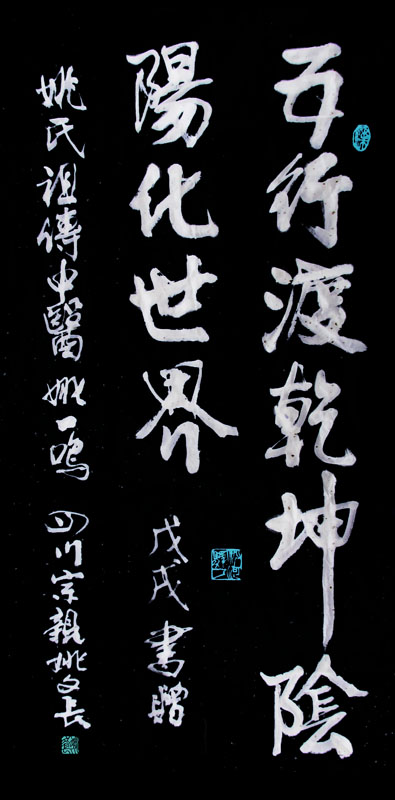 五行渡乾坤陰
陽化世界
戊戌書贈
姚氏祖傳中醫姚一鳴
四川宗親姚文長